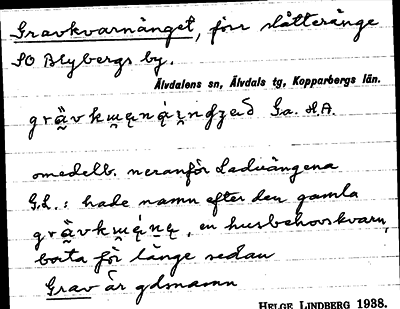 Gravkvarnänget, förr slåtteränge
SO Blybergs by.
Älvdalens sn, Älvdals tg, Kopparbergs län.
Ga. H.A.
omedelb. neranför Ladvängena
G.L.: hade namn efter den gamla
en husbehovskvarn,
borta för länge sedan
Grav är gdmamn
HELGE LINDBERG 1938.